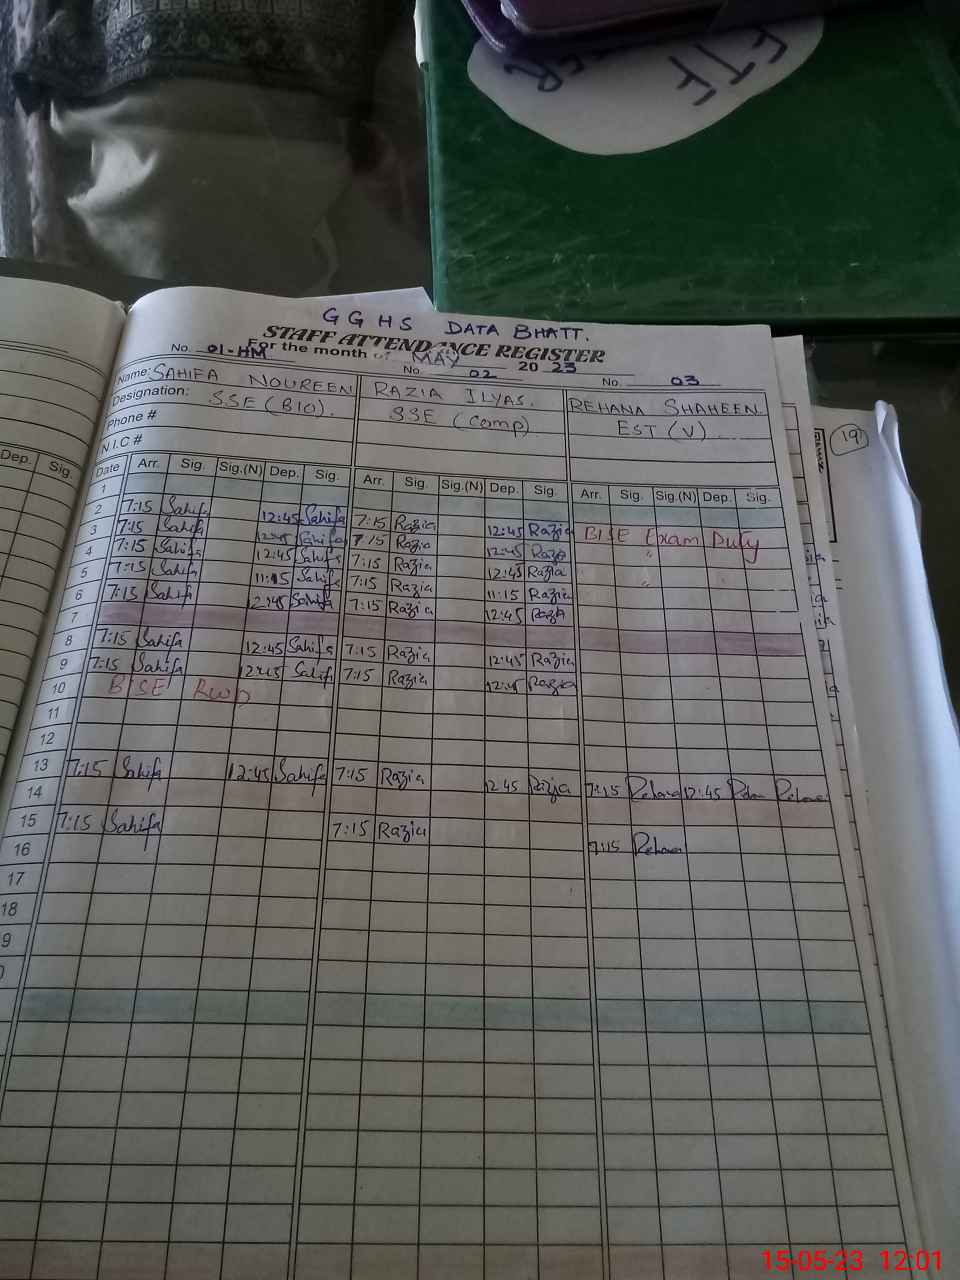 FTF
GGHS DATA BHATT.
STAFF ATTENDANCE REGISTER
For the month of MAY 2023
No. 01-HM No. 02 No. 03
Name: SAHIFA NOUREEN RAZIA ILYAS. REHANA SHAHEEN
Designation: SSE (BIO). SSE (Comp) EST (V)
Phone #
N.I.C #
Dep. Sig. Date Arr. Sig. Sig.(N) Dep. Sig. Arr. Sig. Sig.(N) Dep. Sig. Arr. Sig. Sig.(N) Dep. Sig.
1
2 7:15 Sahifa 12:45 Sahifa 7:15 Razia 12:45 Razia BISE Exam Duty
3 7:15 Sahifa 12:45 Sahifa 7:15 Razia 12:45 Razia "
4 7:15 Sahifa 12:45 Sahifa 7:15 Razia 12:45 Razia "
5 7:15 Sahifa 11:15 Sahifa 7:15 Razia 11:15 Razia
6 7:15 Sahifa 12:45 Sahifa 7:15 Razia 12:45 Razia
7
8 7:15 Sahifa 12:45 Sahifa 7:15 Razia 12:45 Razia
9 7:15 Sahifa 12:45 Sahifa 7:15 Razia 12:45 Razia
10 BISE Rwp
11
12
13 7:15 Sahifa 12:45 Sahifa 7:15 Razia 12:45 Razia 7:15 Rehana 12:45 Rehana
14
15 7:15 Sahifa 7:15 Razia 7:15 Rehana
16
17
18
9
19
15-05-23 12:01